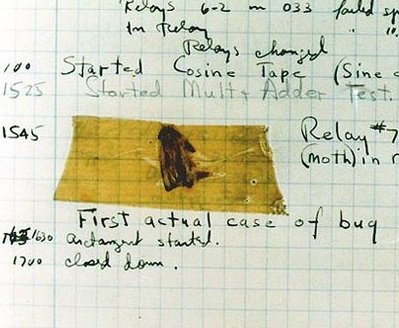 Relays 6-2 in 033 failed sp
In Relay
Relays changed
1100 Started Cosine Tape (Sine c
1525 Started Mult+ Adder Test.
1545 Relay #7
(moth) in r
First actual case of bug
1630 arctangent started.
1700 closed down.